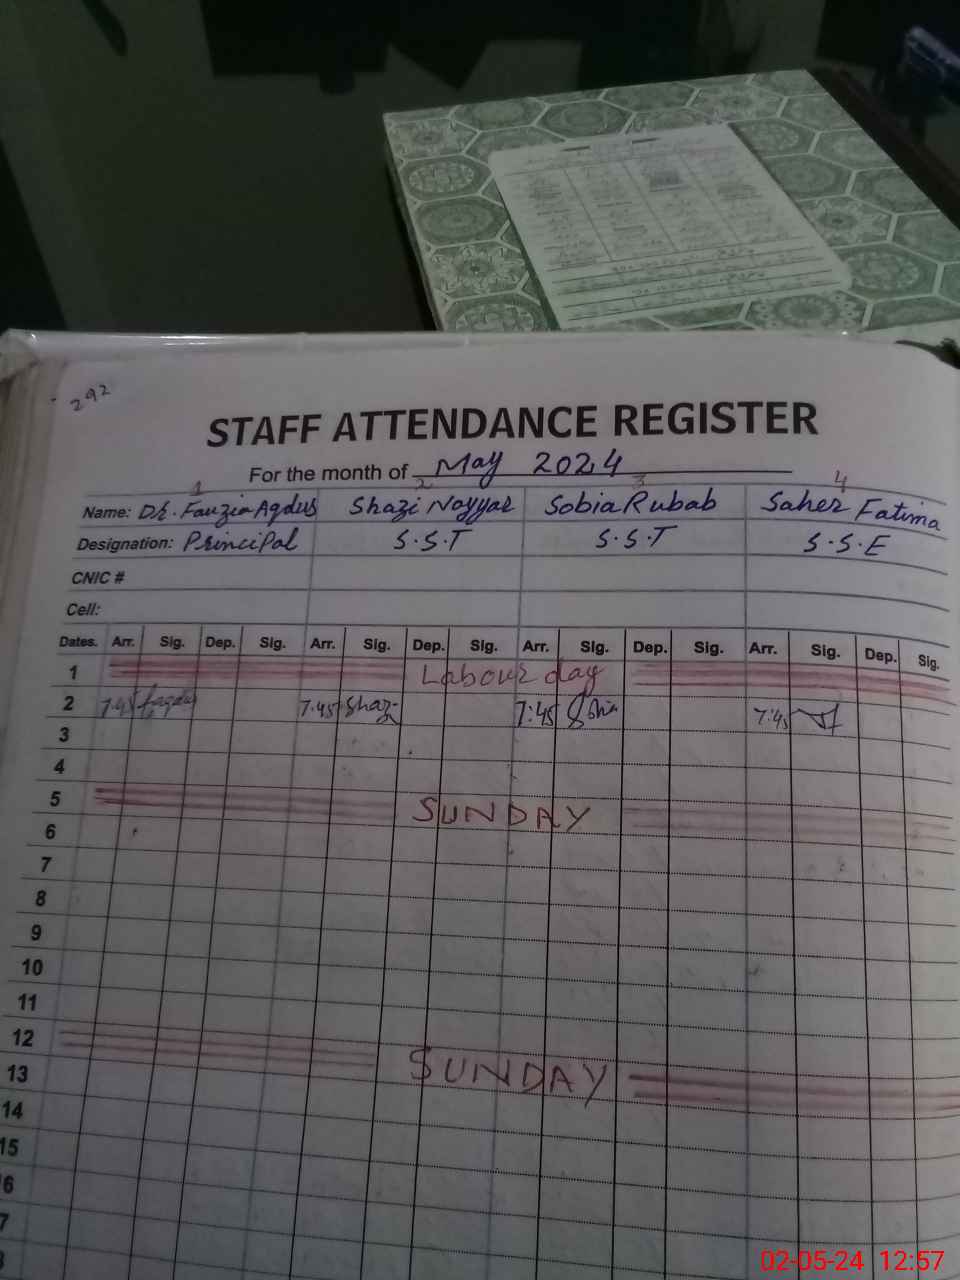 292
STAFF ATTENDANCE REGISTER
For the month of May 2024
1 2 3 4
Name: Dr. Fauzia Aqdus Shazi Nayyar Sobia Rubab Saher Fatima
Designation: Principal S.S.T S.S.T S.S.E
CNIC #
Cell:
Dates. Arr. Sig. Dep. Sig. Arr. Sig. Dep. Sig. Arr. Sig. Dep. Sig. Arr. Sig. Dep. Sig.
1 Labour day
2 7:45 7:45 Shaz 7:45 7:45
3
4
5 SUNDAY
6
7
8
9
10
11
12 SUNDAY
13
14
15
6
7
02-05-24 12:57